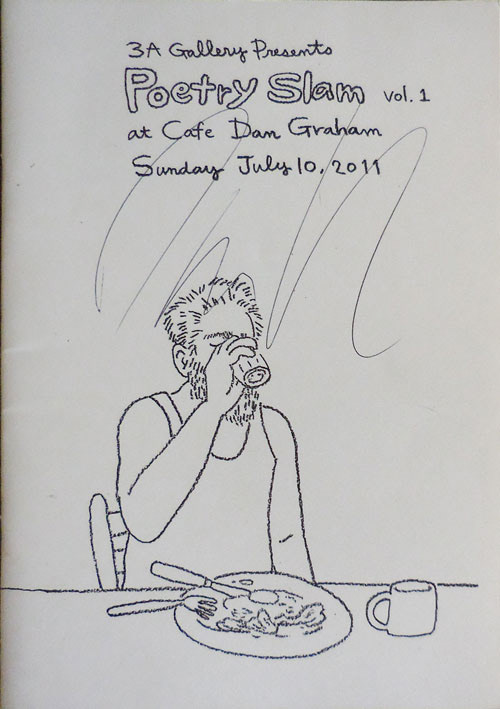 3A Gallery Presents
Poetry Slam vol. 1
at Cafe Dan Graham
Sunday July 10, 2011